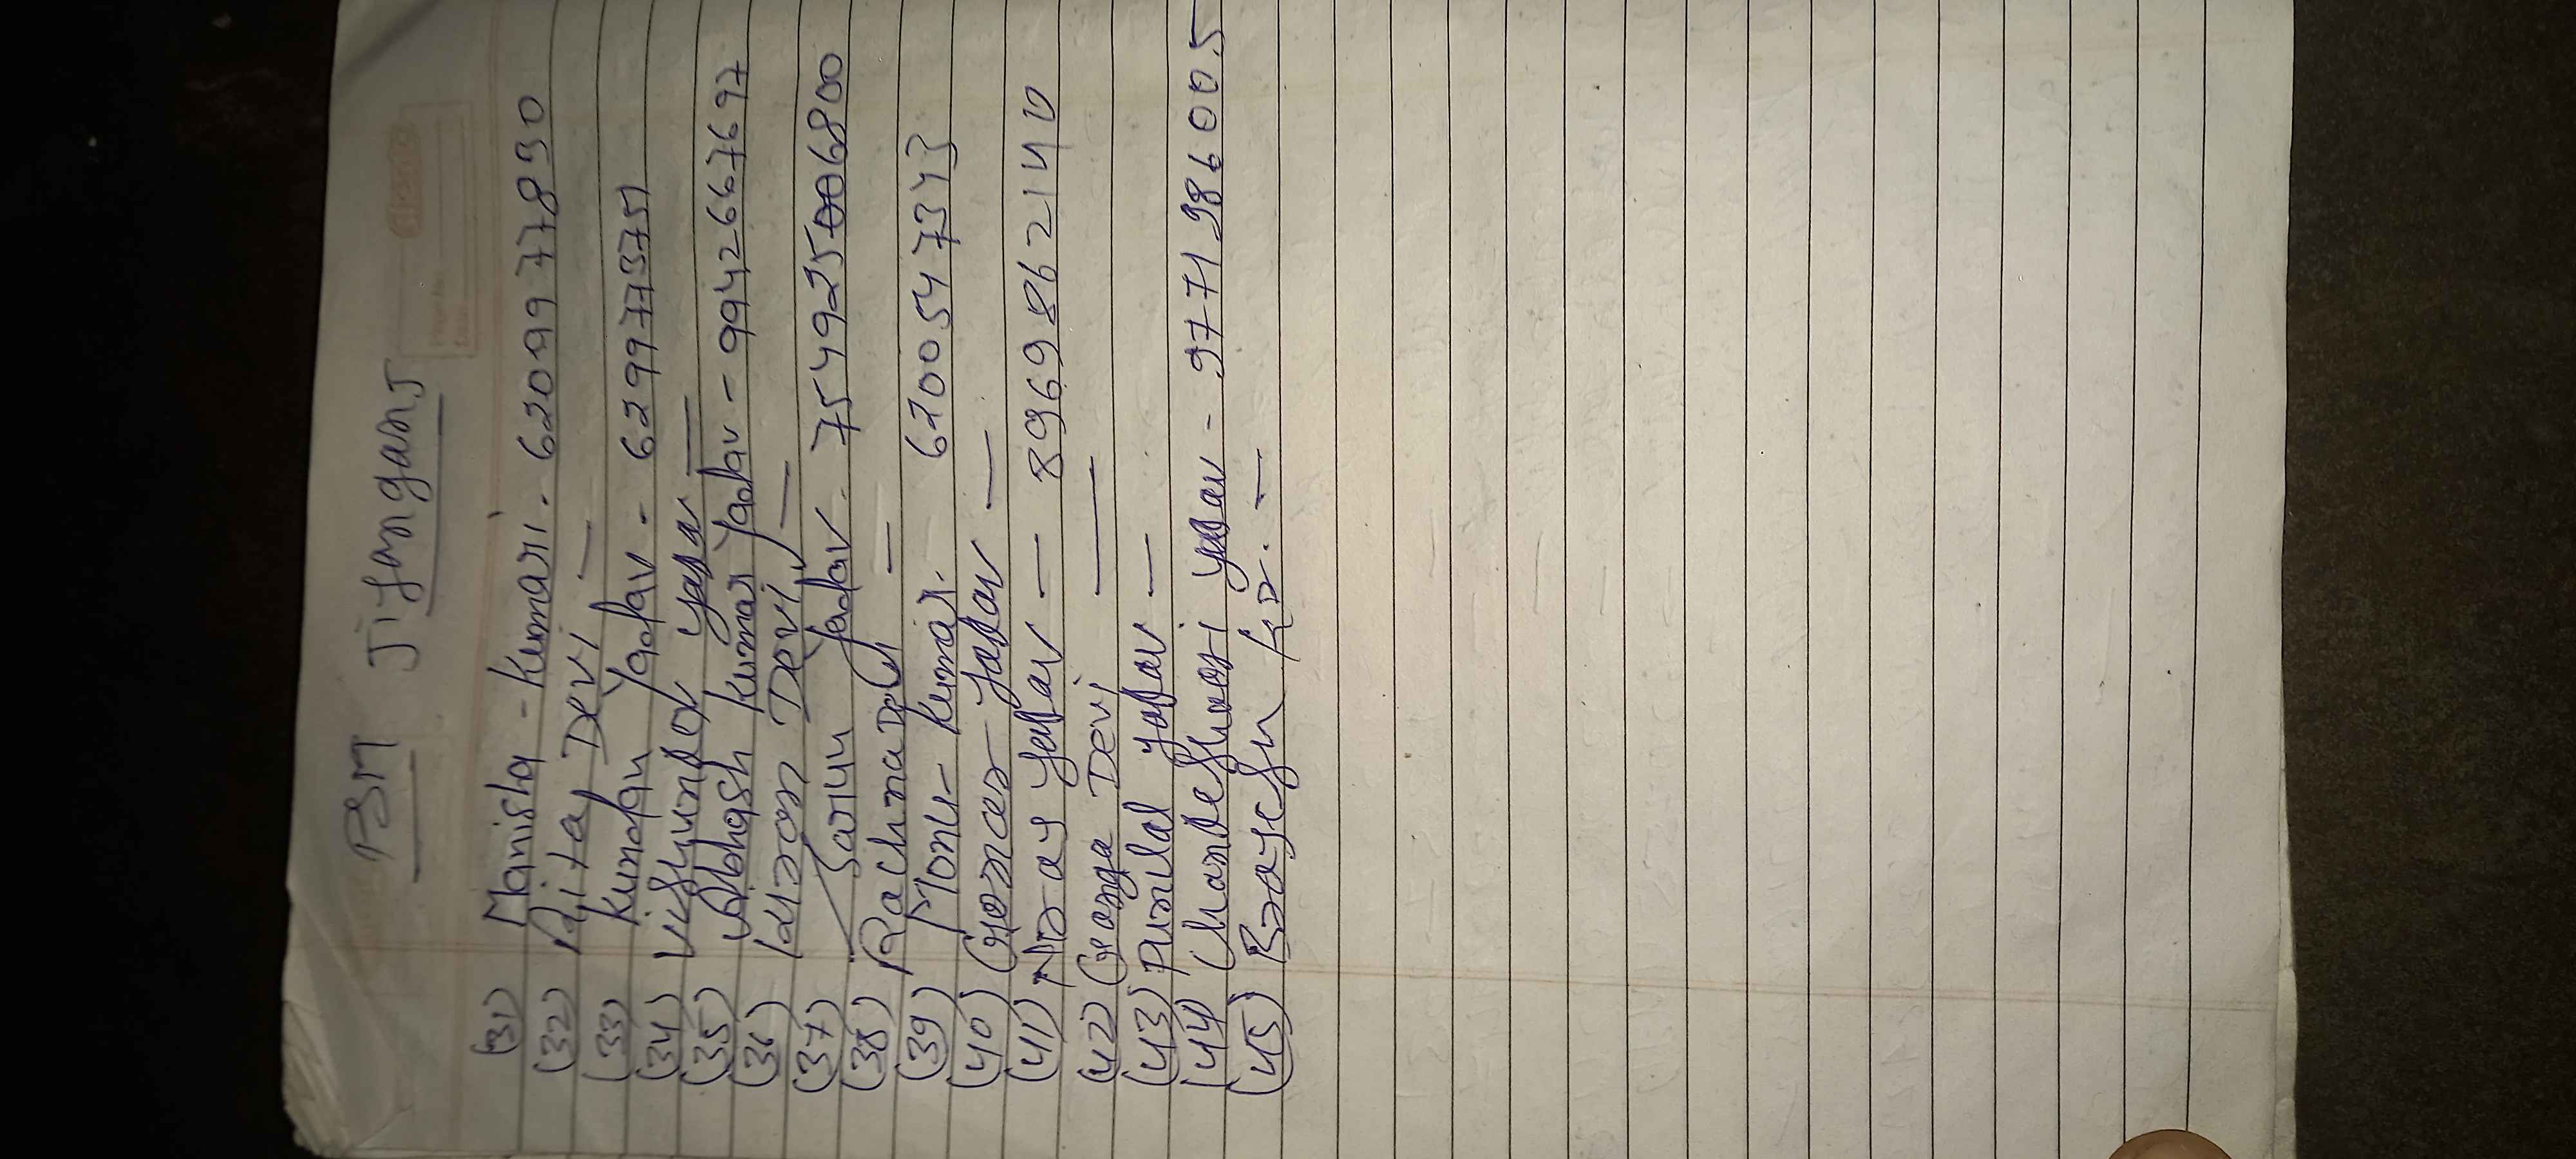 PSM Jiyanganj
(31) Manisha - Kumari. 6209977830
(32) Rita Devi —
(33) Kundan Yadav - 6299773751
(34) Vishundev Yadav
(35) Abhash Kumar Yadav - 9942667697
(36) Kiran Devi —
(37) Sarju Yadav. 7549256800
(38) Rachna Devi —
(39) Monu - Kumar. 6200547343
(40) Yadav —
(41) Yadav — 8969862140
(42) Ganga Devi —
(43) Punilal Yadav —
(44) Chandeshwari Yadav - 9771986005
(45) Brajesh Kr. —